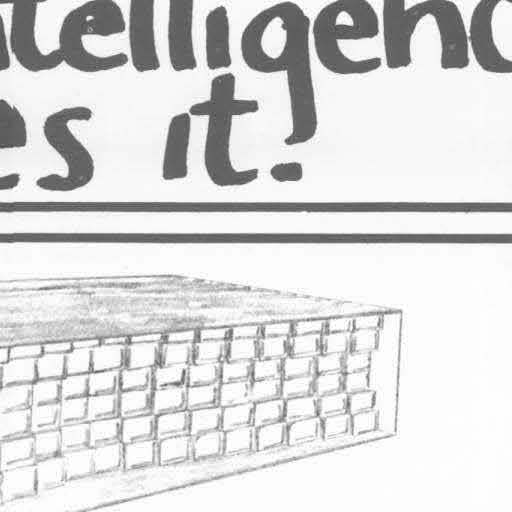 ntelligenc
es it!